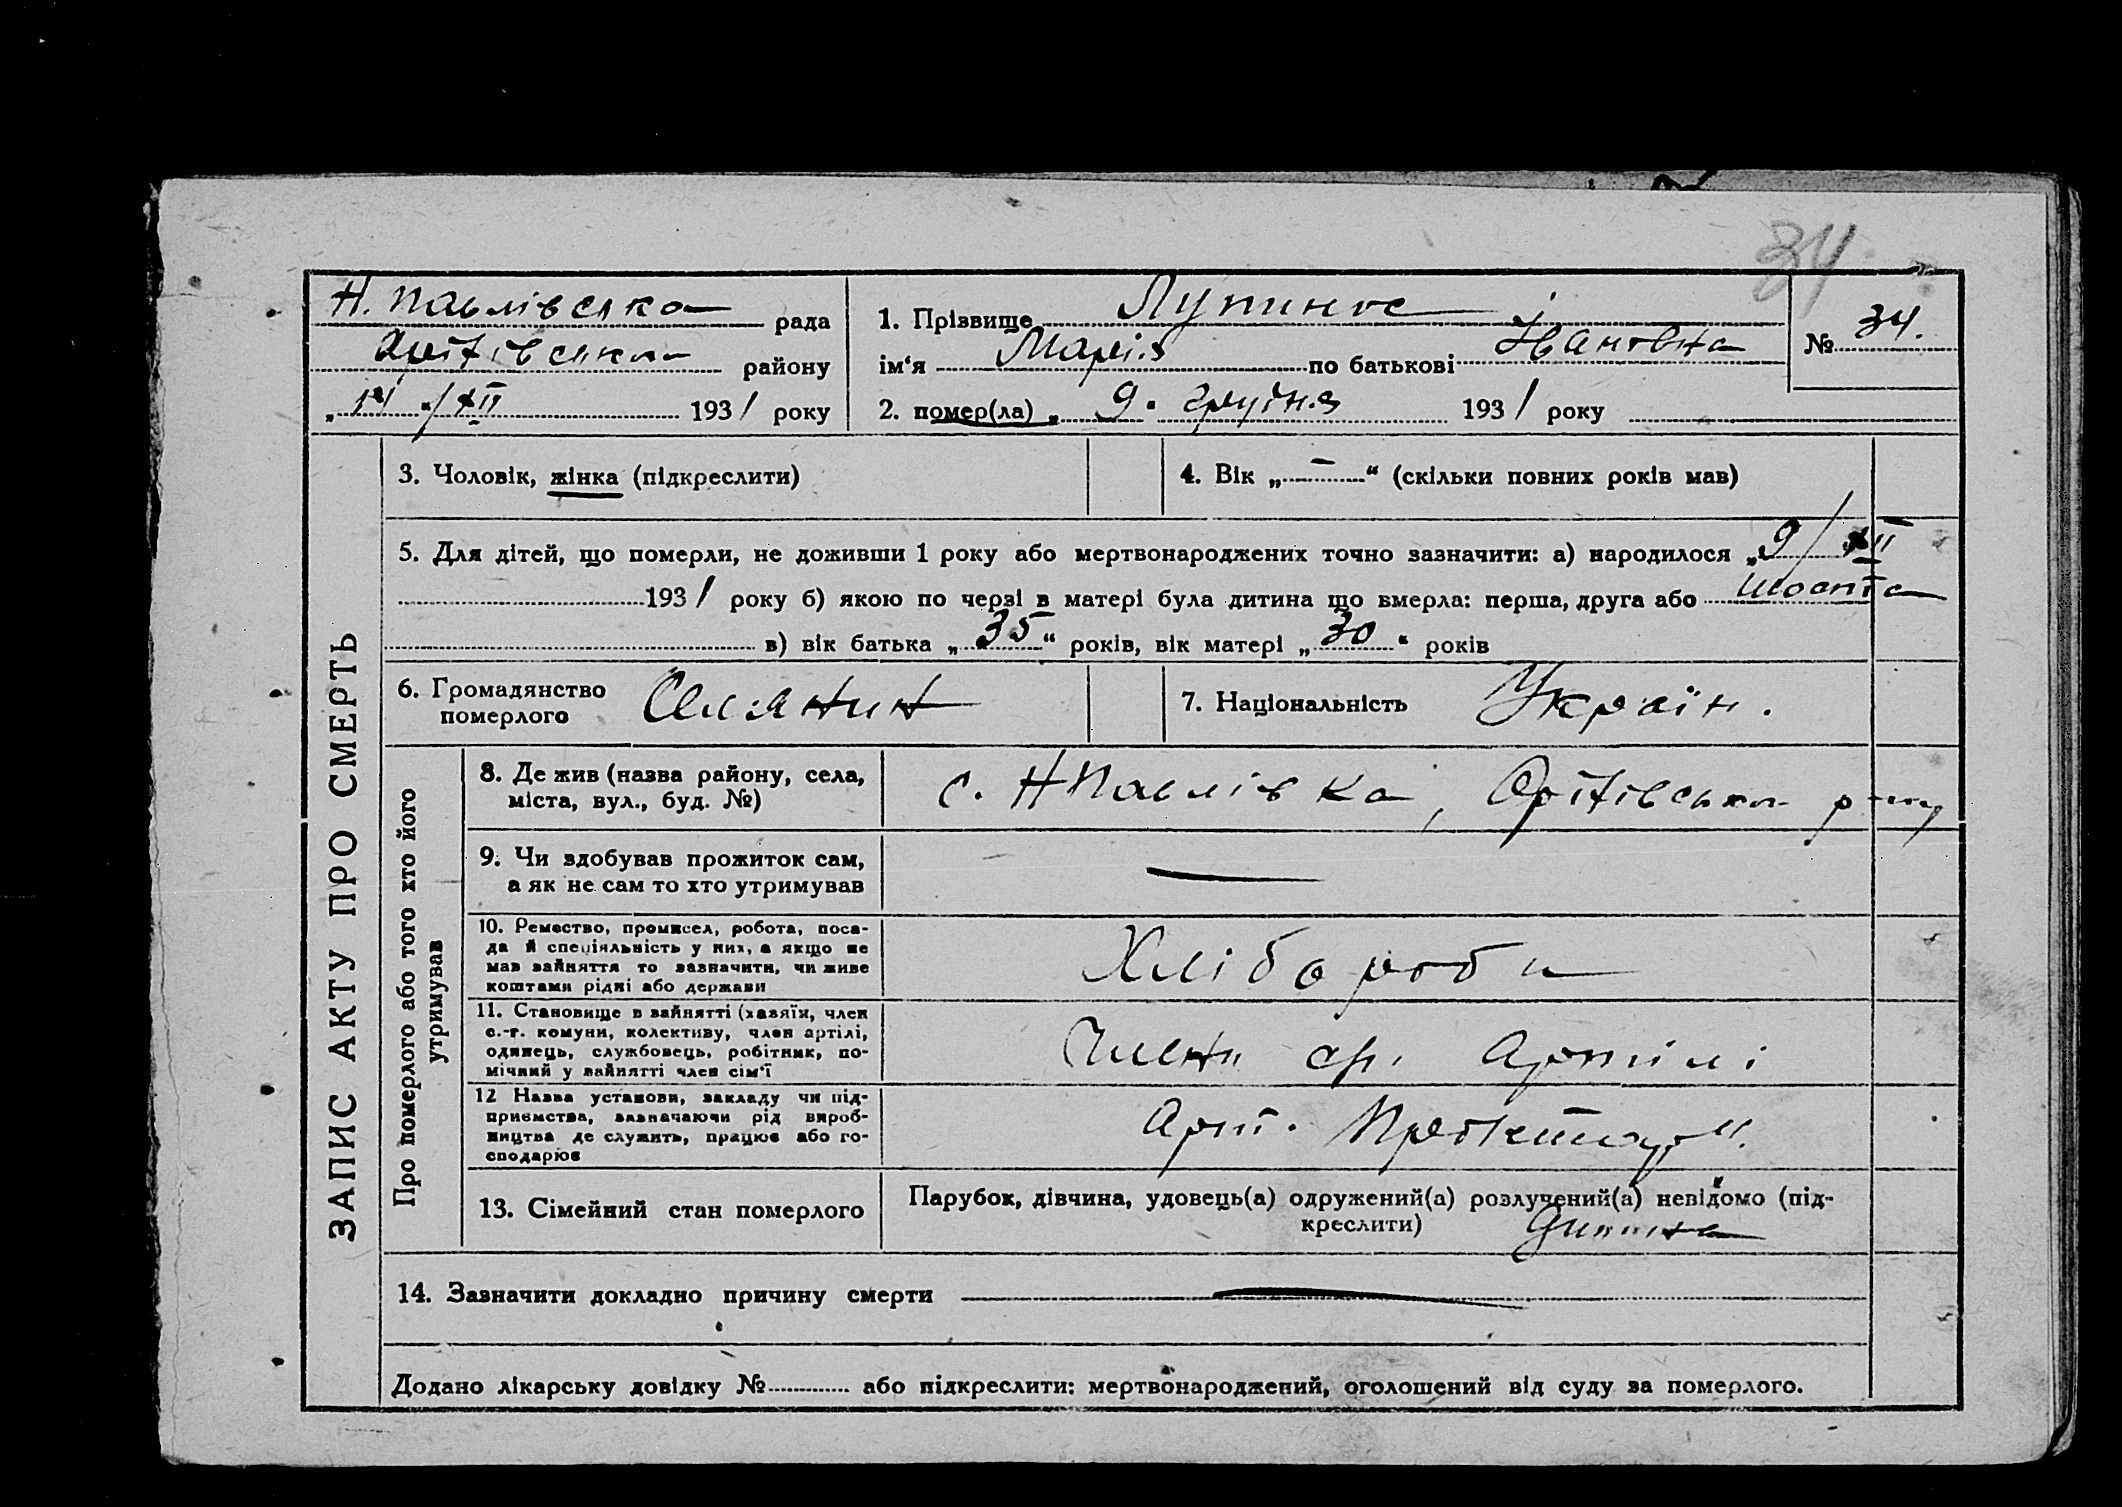 34
Н. Павлівська рада
Оріхівськ. району
„ 14 “ / XII 1931 року
1. Прізвище Лупинос
ім‘я Марія по батькові Івановна
2. помер(ла) „ 9. грудня 1931 року
№ 34.
ЗАПИС АКТУ ПРО СМЕРТЬ
3. Чоловік, жінка (підкреслити)
4. Вік „ — “ (скільки повних років мав)
5. Для дітей, що померли, не доживши 1 року або мертвонароджених точно зазначити: а) народилося „ 9 / XII
1931 року б) якою по черзі в матері була дитина що вмерла: перша, друга або шоста
в) вік батька „ 35 “ років, вік матері „ 30 “ років
6. Громадянство
померлого Селянин
7. Національність Україн.
Про померлого або того хто його
утримував
8. Де жив (назва району, села,
міста, вул., буд. №)
с. НПавлівка, Оріхівськ.
9. Чи здобував прожиток сам,
а як не сам то хто утримував
—
10. Ремество, промисел, робота, поса-
да й спеціяльність у них, а якщо не
мав зайняття то зазначити, чи живе
коштами рідні або держави
Хлібороби
11. Становище в зайнятті (хазяїн, член
с.-г. комуни, колективу, член артілі,
одинець, службовець, робітник, по-
мічний у зайнятті член сім‘ї
Члени с/г. Артілі
12 Назва установи, закладу чи під-
приємства, зазначаючи рід вироб-
ництва де служить, працює або го-
сподарює
Арт.
13. Сімейний стан померлого
Парубок, дівчина, удовець(а) одружений(а) розлучений(а) невідомо (під-
креслити)
14. Зазначити докладно причину смерти —
Додано лікарську довідку № або підкреслити: мертвонароджений, оголошений від суду за померлого.